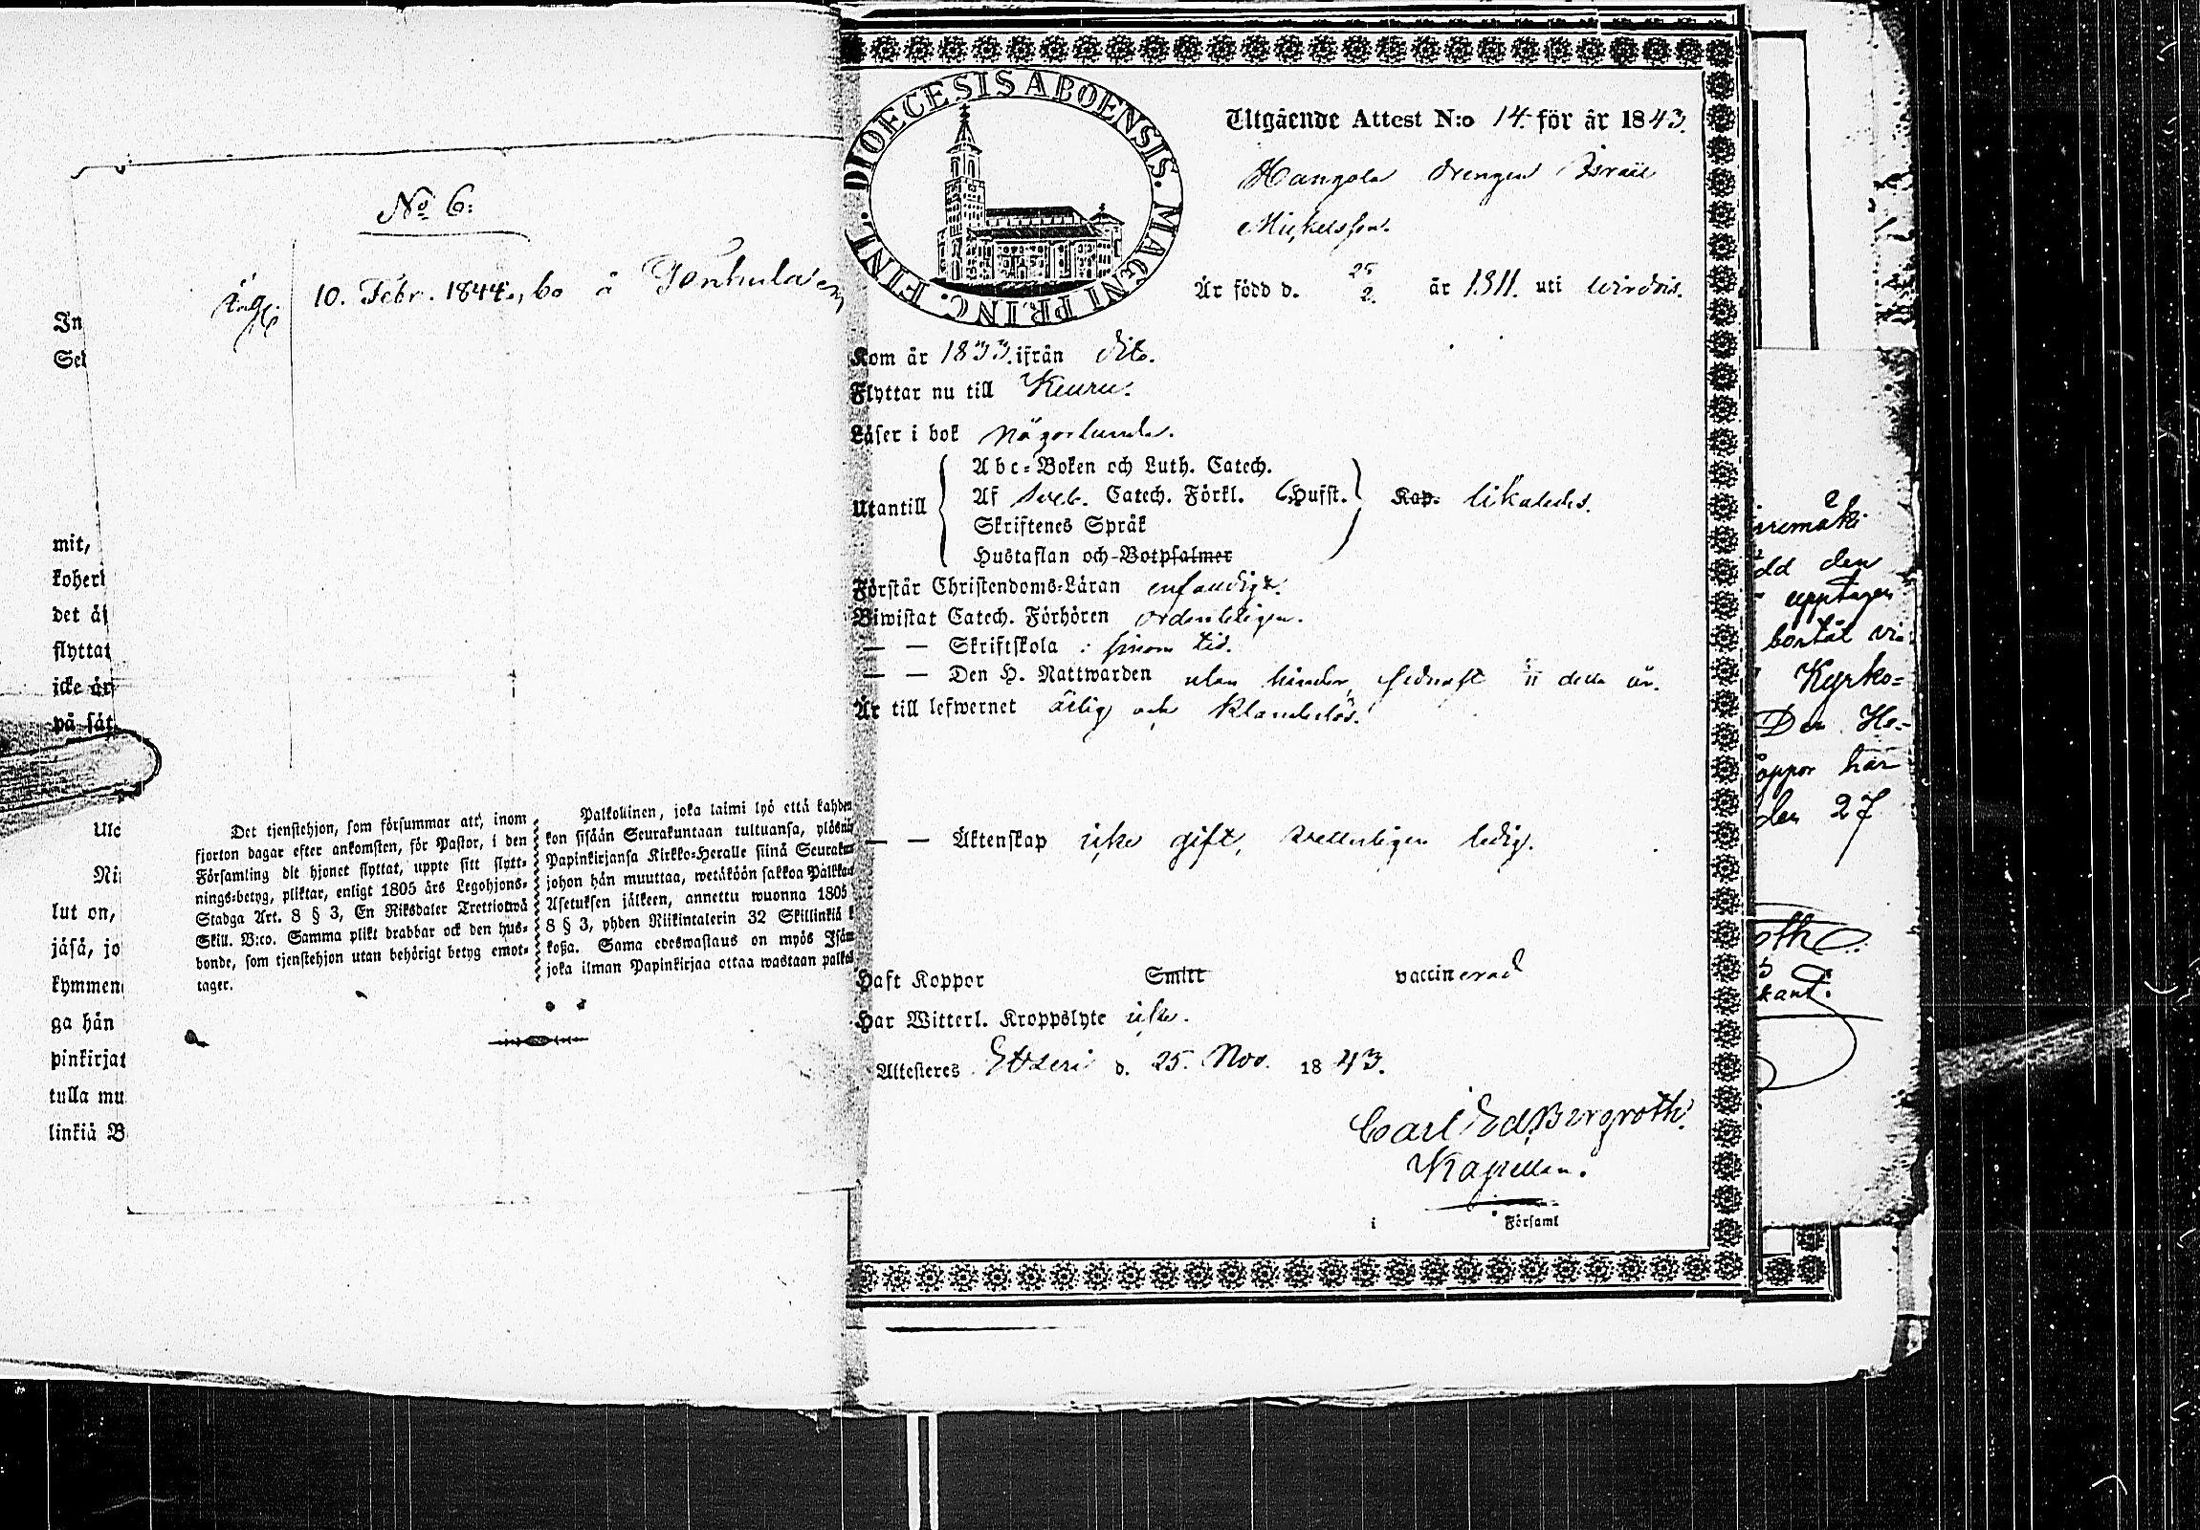 No 6.
10. Febr. 1844., bo å
In
Sel
mit,
koheri
det äf
flyttat
icke är
på såt
Ulo
Ni
lut on,
jäså, jo
kymmen
ga hän
pinkirjat
tulla mu
linkiä B
Det tjenstehjon, som försummar att, inom
fjorton dagar efter ankomsten, för Pastor, i den
Församling dit hjonet flyttat, uppte sitt flytt-
nings-betyg, pliktar, enligt 1805 års Legohjons-
Stadga Art. 8 § 3, En Riksdaler Trettiotwå
Skill. B:co. Samma plikt drabbar ock den hus-
bonde, som tjenstehjon utan behörigt betyg emot-
tager.
Palkolinen, joka laimi lyö että kahden
kon sisään Seurakuntaan tultuansa, ylösnäy
Papinkirjansa Kirkko-Heralle siinä Seuraku
johon hän muuttaa, wetäköön sakkoa Palkka
Asetuksen jälkeen, annettu wuonna 1805
8 § 3, yhden Riikintalerin 32 Skillinkiä
koßa. Sama edeswastaus on myös Isän
joka ilman Papinkirjaa ottaa wastaan palkol
DIOECESIS ABOENSIS. MAGNI PRINC. FINL.
Utgående Attest N:o 14. för år 1843.
Hangola drengen Israel
Mickelsson.
Är född d. 25/2. år 1811. uti Wirdois.
Kom år 1833. ifrån dito.
Flyttar nu till Keuru.
Läser i bok någorlunda.
Utantill
Abc-Boken och Luth. Catech.
Af Sveb. Catech. Förkl. 6 Hufst.
Skriftenes Språk
Hustaflan och Botpsalmer
Kap. likaledes.
Förstår Christendoms-Läran enfaldigt.
Biwistat Catech. Förhören ordenteligen.
— — Skriftskola i sinom tid.
— — Den H. Nattwarden utan hinder, sednast detta år.
Är till lefwernet ärlig och klanderlös.
— — Äktenskap icke gift, wetterligen ledig.
Haft Koppor Smitt vaccinerad
Har Witterl. Kroppslyte icke.
Attesteres Etseri d. 25. Nov. 1843.
Carl Ed. Bergroth.
Kapellan.
i Församl
dd den
upptagen
Kyrko-
Den He-
oppor har
den 27